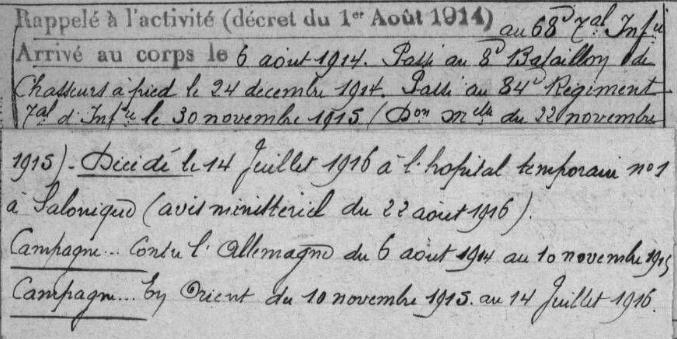 Rappelé à l'activité (décret du 1er Août 1914) au 68e Tal Infie
Arrivé au corps le 6 août 1914. Passé au 8e Bataillon de
Chasseurs à pied le 24 decembre 1914. Passé au 84e Régiment
Tal d'Infie le 30 novembre 1915 (Don Melle du 22 novembre
1915). Décédé le 14 Juillet 1916 à l'hopital temporaire no 1
à Salonique (avis ministeriel du 22 août 1916).
Campagne... Contre l'Allemagne du 6 août 1914 au 10 novembre 1915
Campagne... En Orient du 10 novembre 1915. au 14 Juillet 1916.